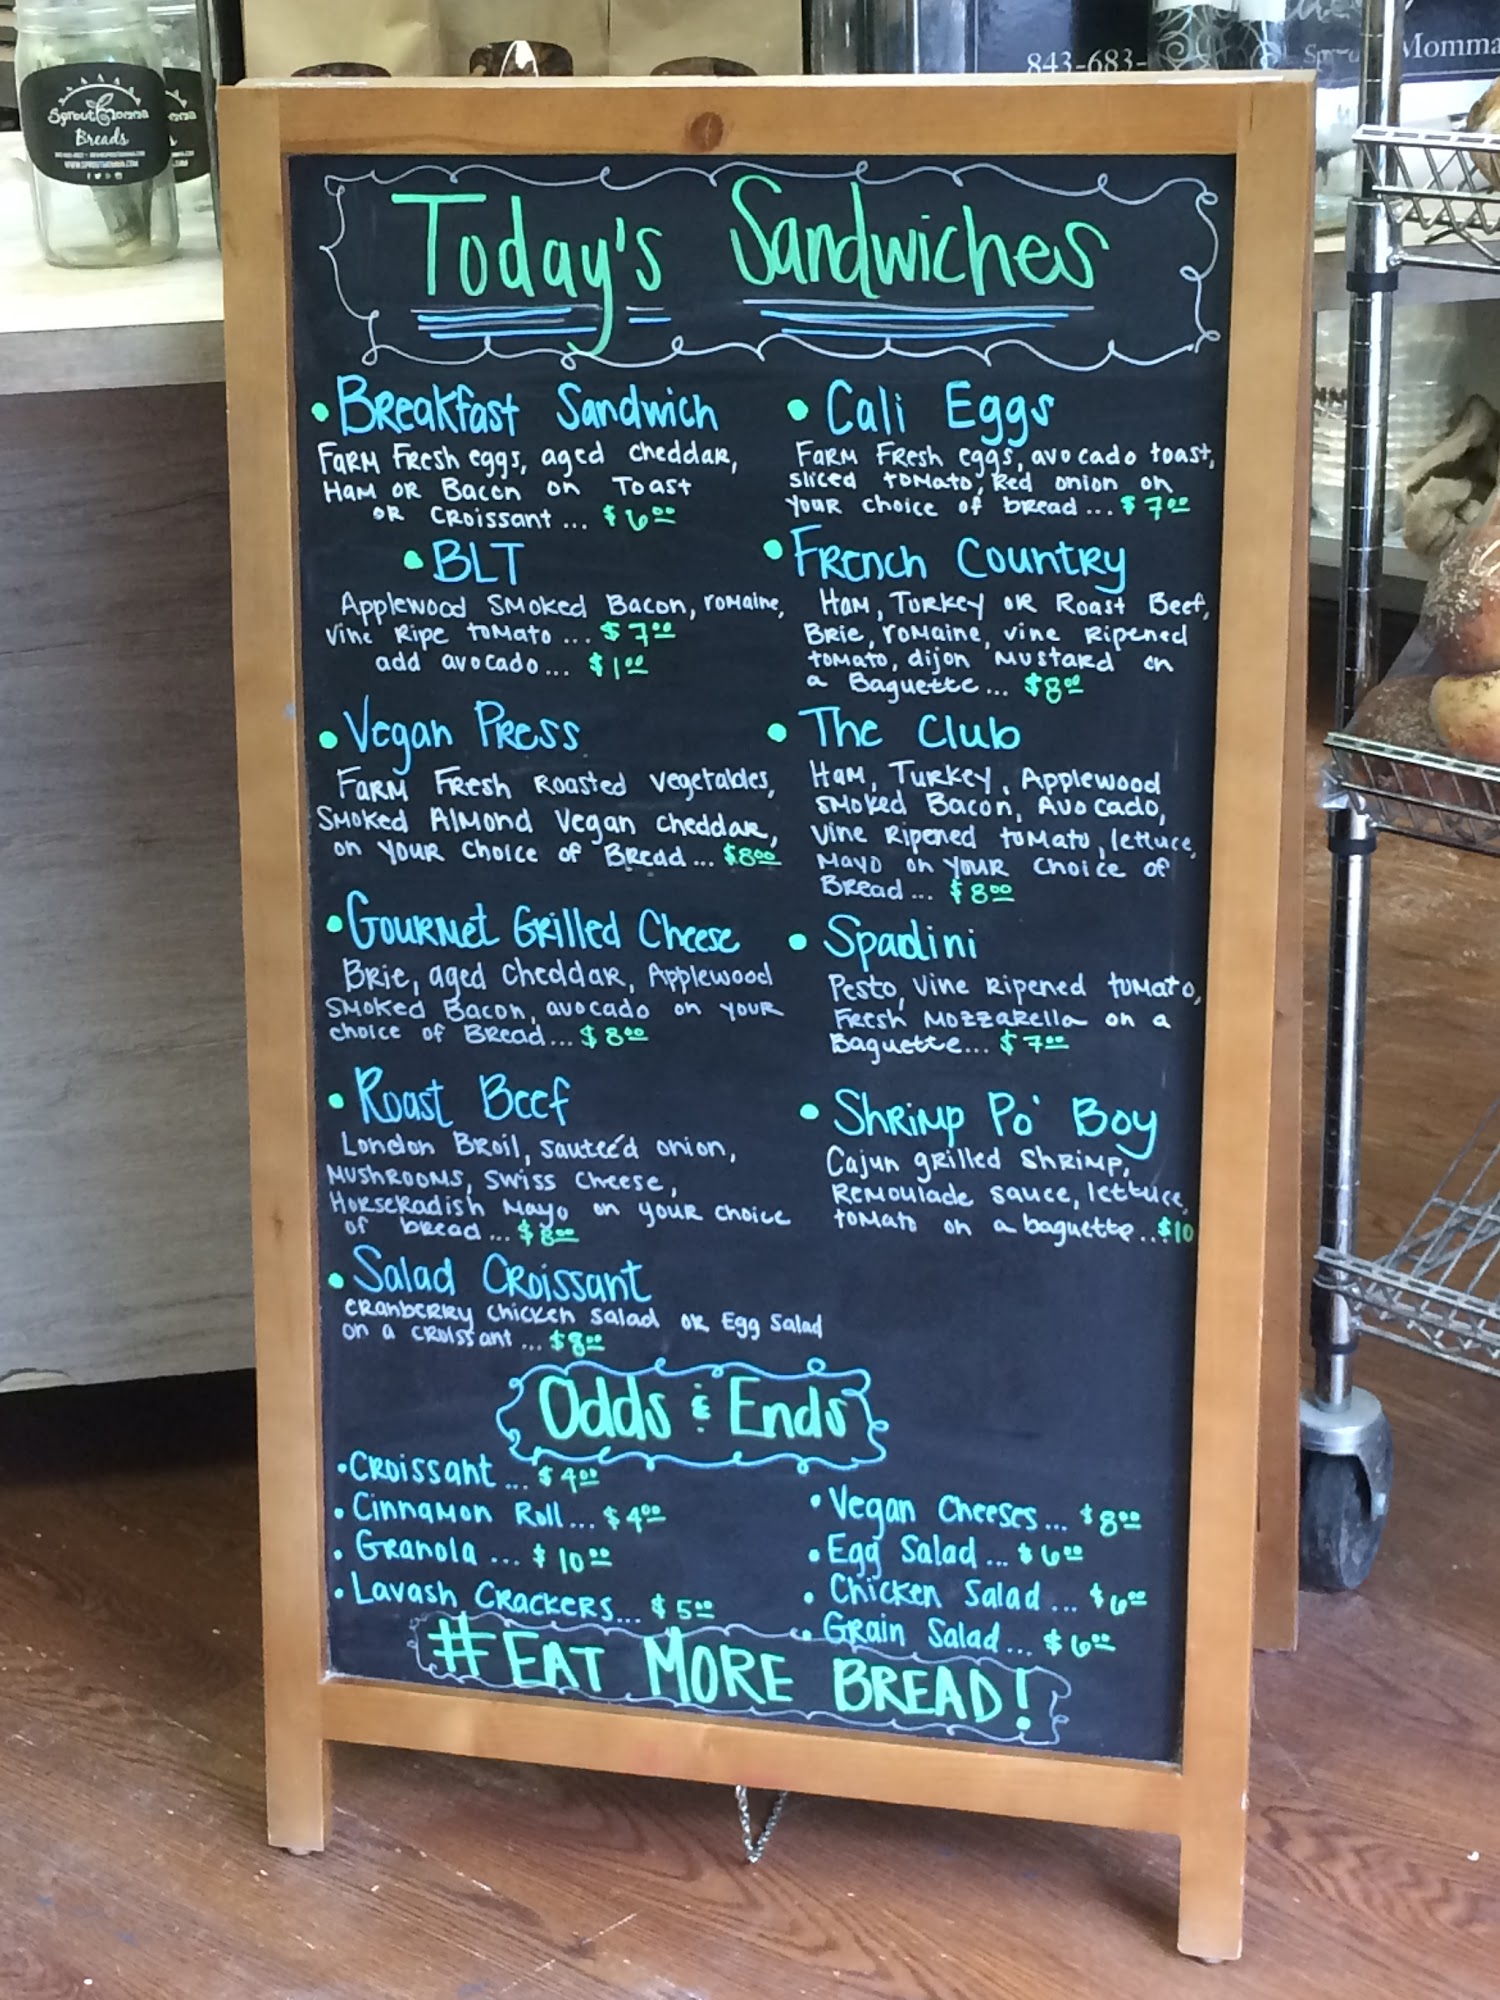 Sprout Momma
Breads
WWW.SPROUTMOMMA.COM
843-683-
Momma
Today's Sandwiches
• Breakfast Sandwich
Farm Fresh eggs, aged cheddar,
Ham or Bacon on Toast
or Croissant ... $6.00
• BLT
Applewood Smoked Bacon, romaine,
Vine Ripe tomato ... $7.00
add avocado ... $1.00
• Vegan Press
Farm Fresh Roasted vegetables,
Smoked Almond Vegan cheddar,
on your choice of Bread ... $8.00
• Gourmet Grilled Cheese
Brie, aged cheddar, Applewood
Smoked Bacon, avocado on your
choice of Bread ... $8.00
• Roast Beef
London Broil, sauteéd onion,
Mushrooms, Swiss cheese,
Horseradish Mayo on your choice
of bread ... $8.00
• Salad Croissant
Cranberry chicken salad or Egg Salad
on a croissant ... $8.00
• Cali Eggs
Farm Fresh eggs, avocado toast,
sliced tomato, Red onion on
your choice of bread ... $7.00
• French Country
Ham, Turkey or Roast Beef,
Brie, romaine, vine ripened
tomato, dijon mustard on
a Baguette ... $8.00
• The Club
Ham, Turkey, Applewood
smoked Bacon, Avocado,
Vine Ripened tomato, lettuce,
Mayo on your choice of
Bread ... $8.00
• Spadini
Pesto, Vine Ripened tomato,
Fresh Mozzarella on a
Baguette ... $7.00
• Shrimp Po' Boy
Cajun grilled shrimp,
Remoulade sauce, lettuce,
tomato on a baguette ... $10
Odds & Ends
• Croissant ... $4.00
• Cinnamon Roll ... $4.00
• Granola ... $10.00
• Lavash Crackers ... $5.00
• Vegan Cheeses ... $8.00
• Egg Salad ... $6.00
• Chicken Salad ... $6.00
• Grain Salad ... $6.00
#EAT MORE BREAD!